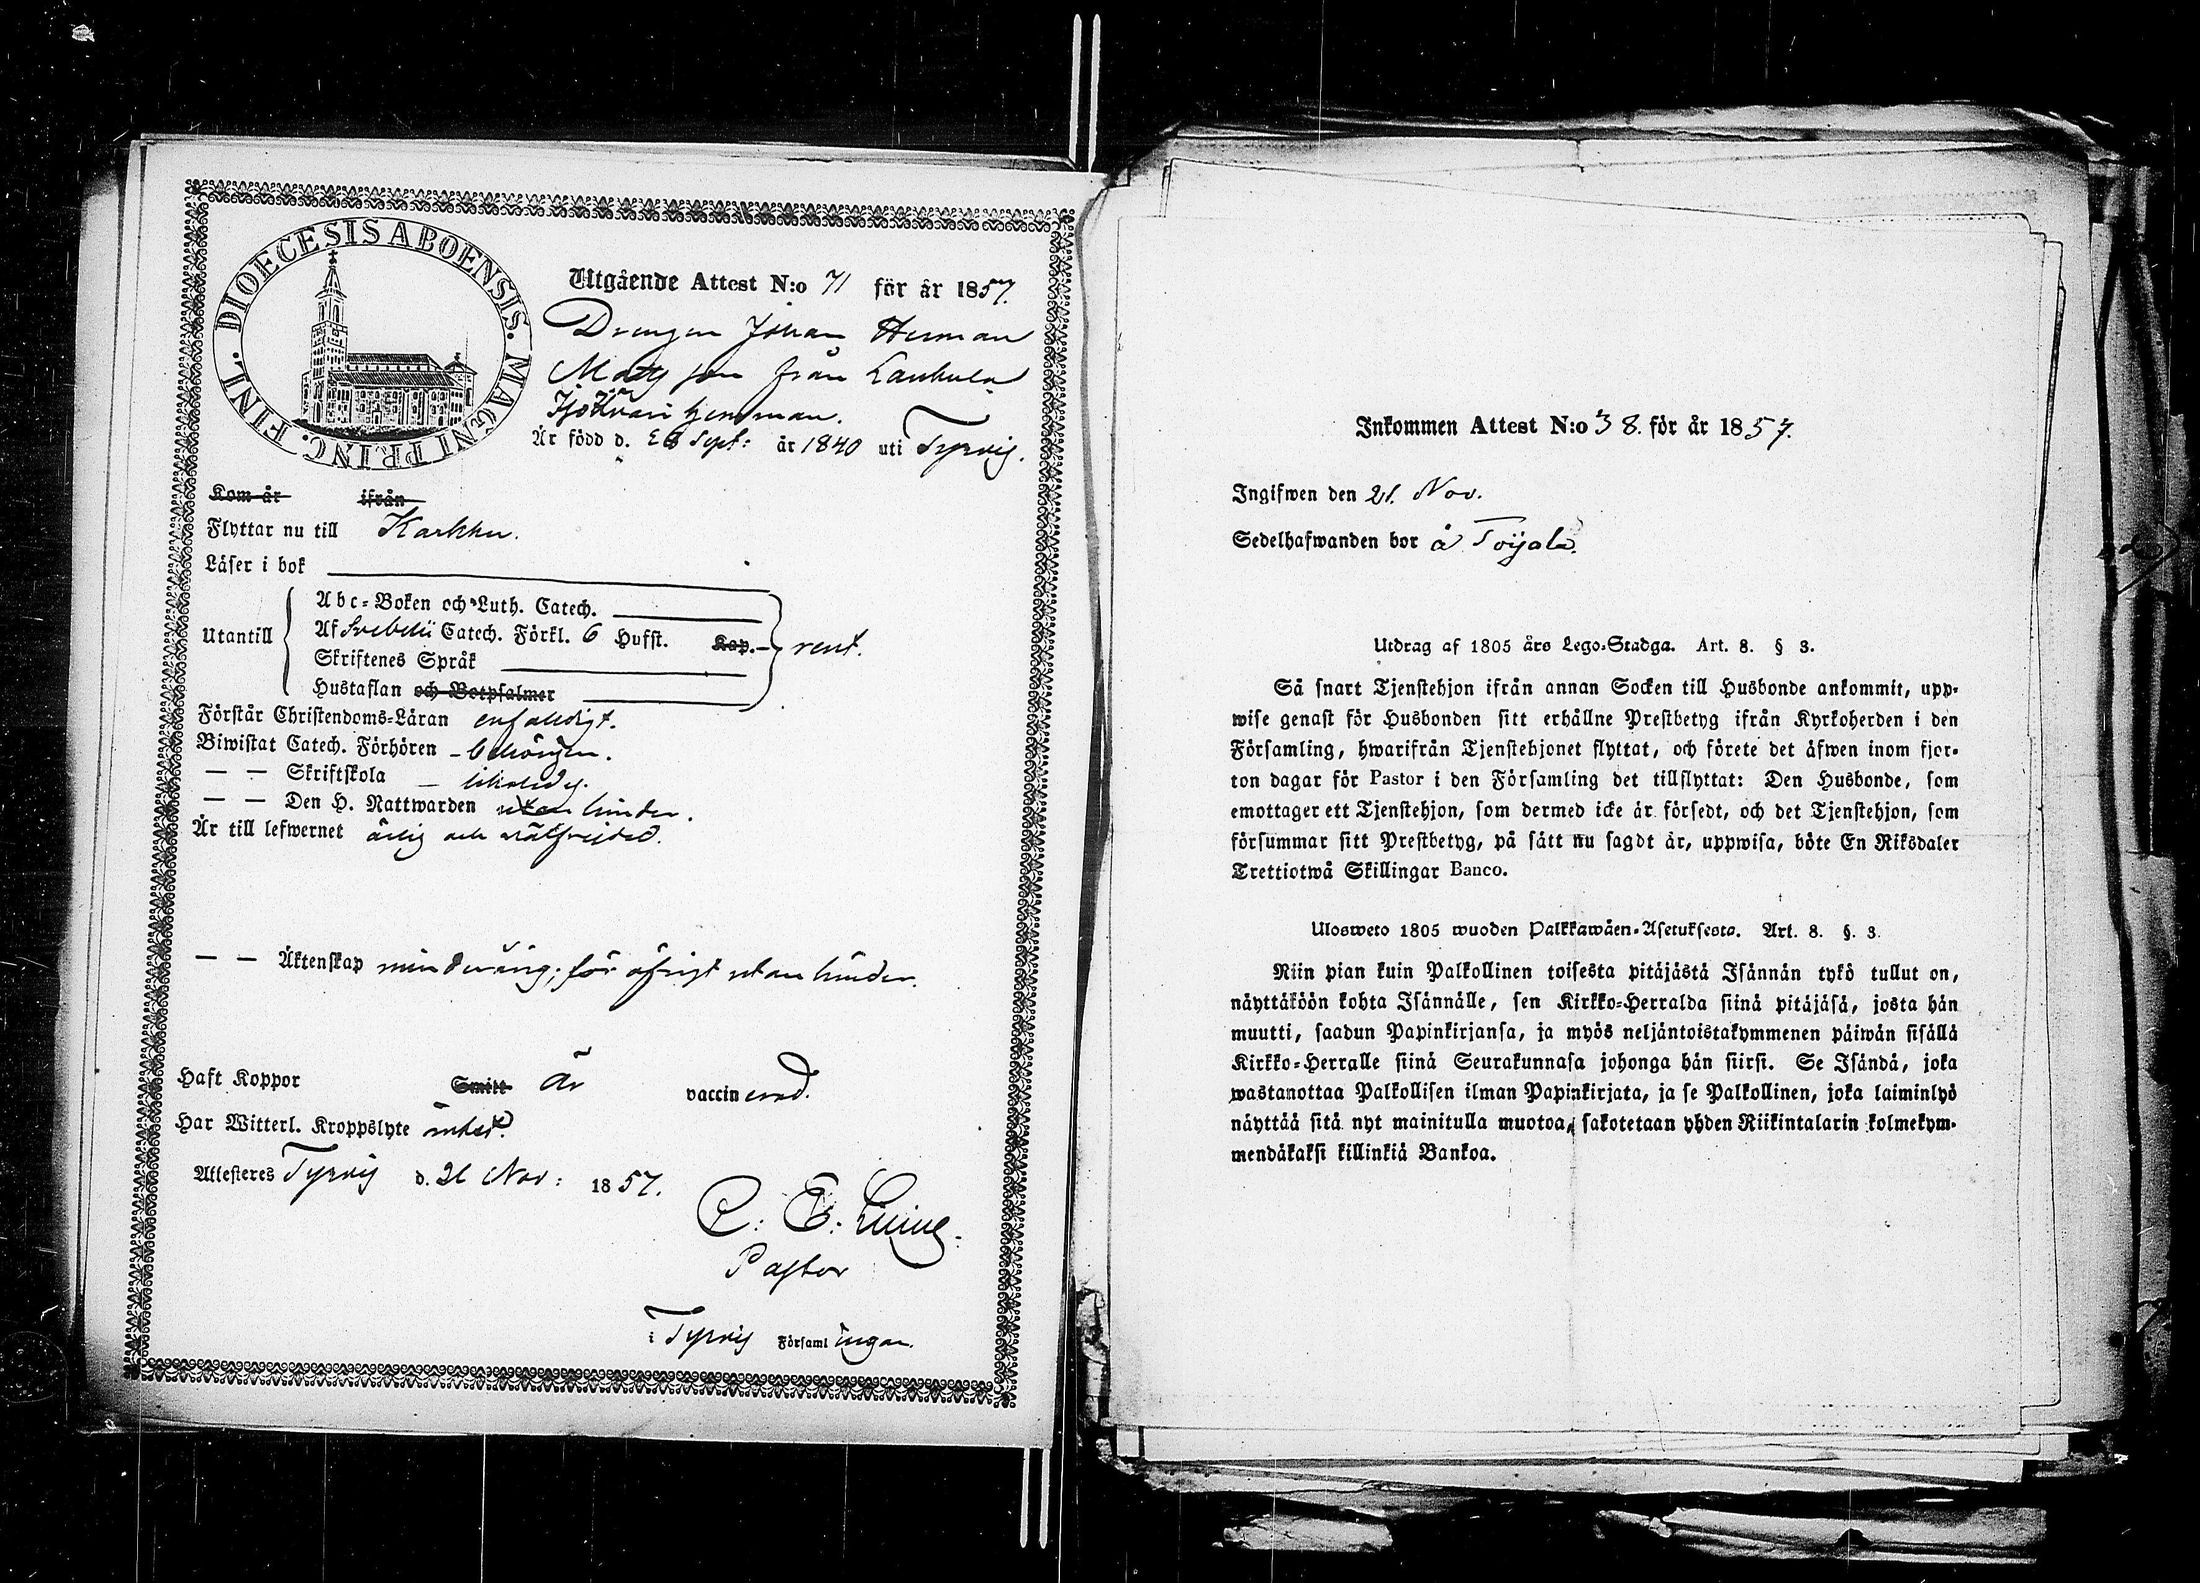 DIOECESIS ABOENSIS. MAGNI PRINC. FINL.
Utgående Attest N:o 71 för år 1857.
Drengen Johan Herman
Mats son från Laukula
hemman.
Är född d. Sept: år 1840 uti Tyrvis.
Kom år ifrån
Flyttar nu till Karkku.
Läser i bok
Utantill
Abc-Boken och Luth. Catech.
Af Svebelii Catech. Förkl. 6 Hufst. Kap. – rent.
Skriftenes Språk
Hustaflan och Botpsalmer
Förstår Christendoms-Läran enfalldigt.
Biwistat Catech. Förhören – behörigen.
— — Skriftskola – likaledes.
— — Den H. Nattwarden utan hinder.
Är till lefwernet ärlig och wälfrejdad.
— — Äktenskap minderårig; för öfrigt utan hinder.
Haft Koppor Smitt är vaccinerad.
Har Witterl. Kroppslyte intet.
Attesteres Tyrvis d. 21 Nov: 1857.
C: E: Lilius.
Pastor
i Tyrvis Församlingar.
Inkommen Attest N:o 38. för år 1857.
Ingifwen den 21. Nov.
Sedelhafwanden bor å Toijala.
Utdrag af 1805 års Lego-Stadga. Art. 8. § 3.
Så snart Tjenstehjon ifrån annan Socken till Husbonde ankommit, upp-
wise genast för Husbonden sitt erhållne Prestbetyg ifrån Kyrkoherden i den
Församling, hwarifrån Tjenstehjonet flyttat, och förete det äfwen inom fjor-
ton dagar för Pastor i den Församling det tillflyttat: Den Husbonde, som
emottager ett Tjenstehjon, som dermed icke är försedt, och det Tjenstehjon, som
försummar sitt Prestbetyg, på sätt nu sagdt är, uppwisa, böte En Riksdaler
Trettiotwå Skillingar Banco.
Ulosweto 1805 wuoden Palkkawäen-Asetuksesta. Art. 8. §. 3.
Niin pian kuin Palkollinen toisesta pitäjästä Isännän tykö tullut on,
näyttäköön kohta Isännälle, sen Kirkko-Herralda siinä pitäjäsä, josta hän
muutti, saadun Papinkirjansa, ja myös neljäntoistakymmenen päiwän sisällä
Kirkko-Herralle siinä Seurakunnasa johonga hän siirsi. Se Isändä, joka
wastanottaa Palkollisen ilman Papinkirjata, ja se Palkollinen, joka laiminlyö
näyttää sitä nyt mainitulla muotoa, sakotetaan yhden Riikintalarin kolmekym-
mendäkaksi killinkiä Bankoa.